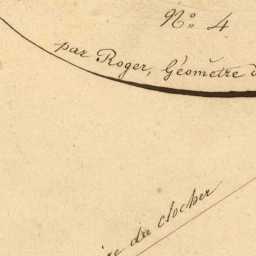 N.º 4
par Roger, Géomètre
du clocher